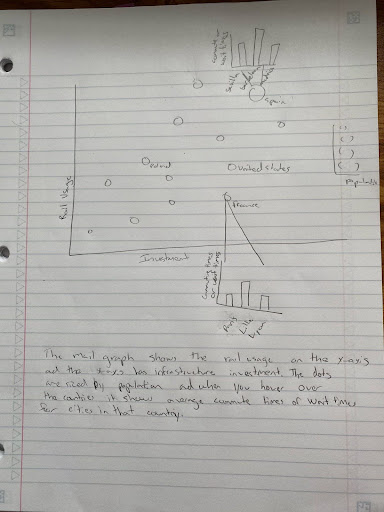 commute or
wait times
Seville
Spain
Rail Usage
United States
population
France
Investment
Commuting times
or wait times
Paris
Lille
Lyon
The main graph shows the rail usage on the Y-axis
and the X-axis has infrastructure investment. The dots
are sized by population and when you hover over
the countries it shows average commute times of wait times
for cities in that country.